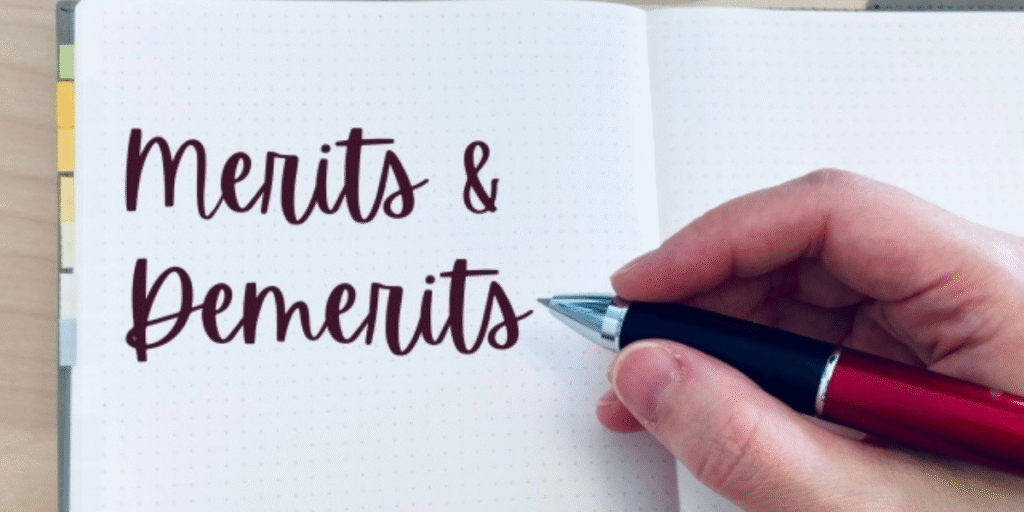 Merits &
Demerits